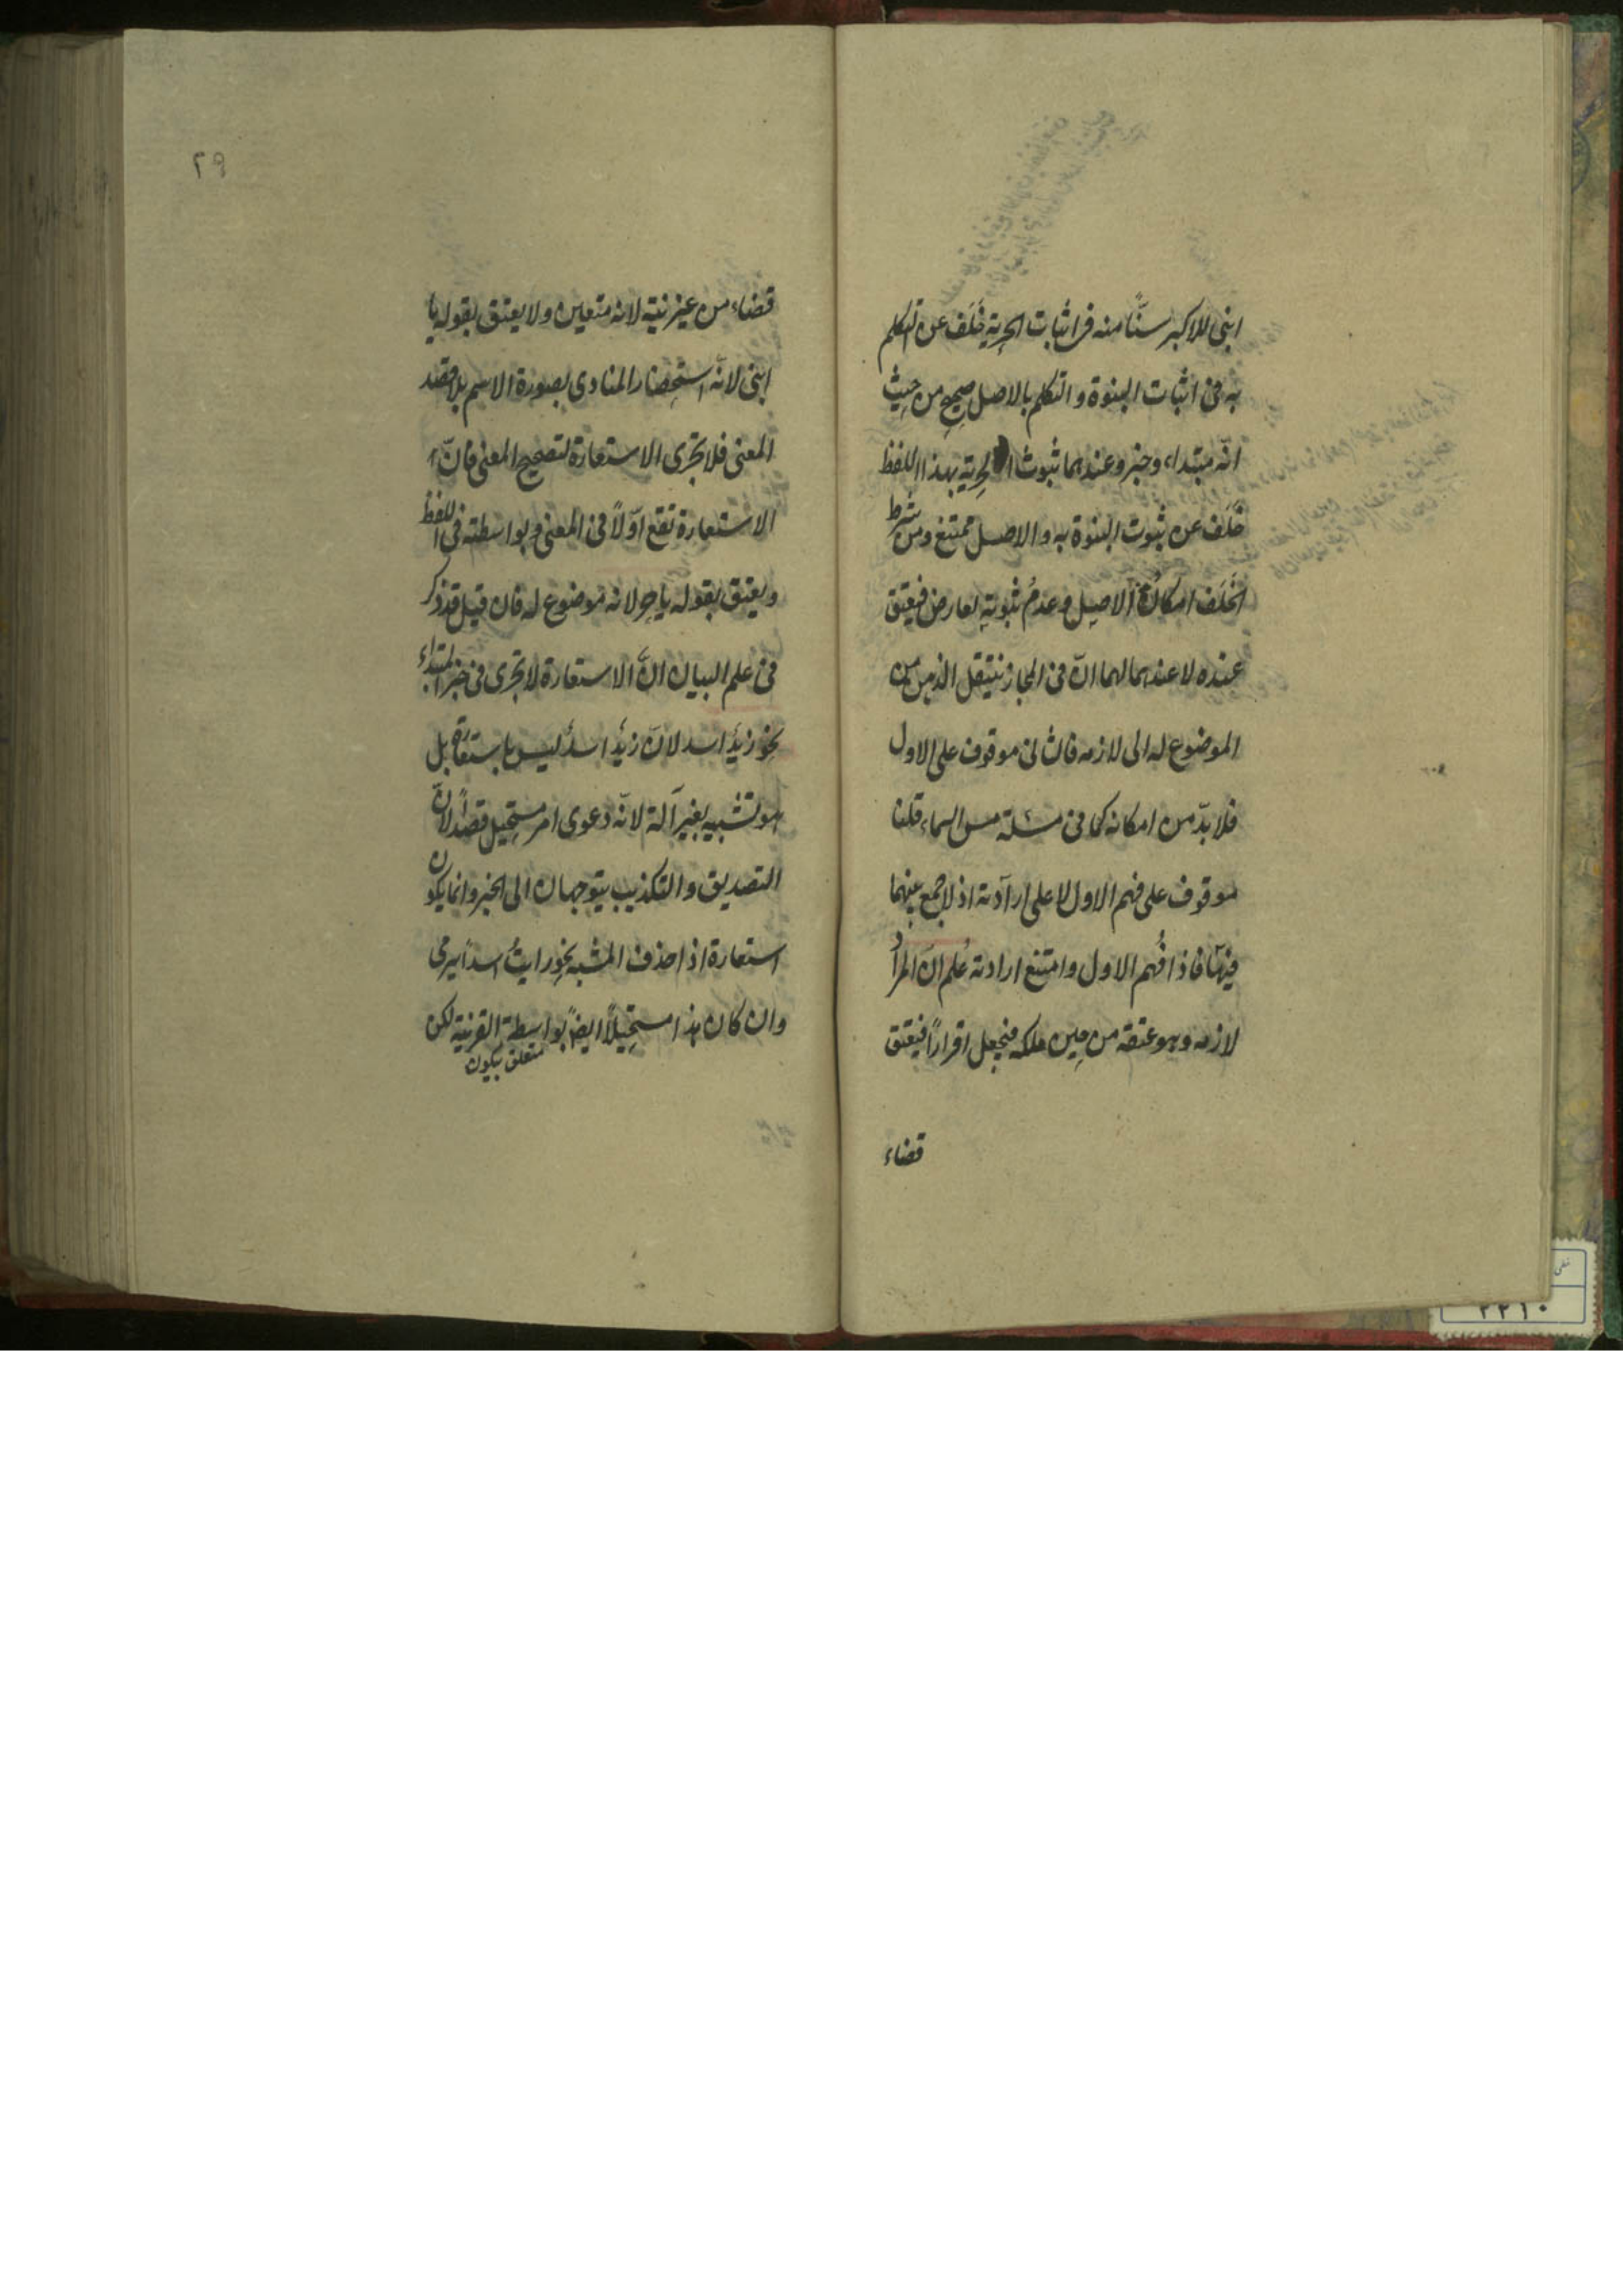 ابنى للاكبر سنًّا منه فى اثبات الحرية خَلَف عن التكلم
به فى اثبات البنوة و التكلم بالاصل صحيح من حيث
انّه مبتداء و خبر و عندهما ثبوث الحرية بهذا اللفظ
خَلَف عن ثبوت البنوة به و الاصل ممتنع و من شرط
الخَلَف امكانُ الاصل و عدمُ ثبوته لعارض فيعتق
عنده لا عندهما لهما انّ فى المجاز ينتقل الذهن من
الموضوع له الى لازمه فالثانى موقوف على الاول
فلا بدّ من امكانه كما فى مسئلة مس السماء قلنا
موقوف على فهم الاول لا على ارادته اذ لا جمع بينهما
فيها فاذا فُهم الاول و امتنع ارادته عُلم انّ المرادُ
لازمه و هو عتقه من حين ملكه فيجعل اقراراً فيعتق
قضاء
٢٩
قضاء من غير نية لانه متعين و لا يعتق بقوله يا
ابنى لانّه استحضار المنادى بصورة الاسم بلا قصد
المعنى فلا تجرى الاستعارة لتصحيح المعنى فانّ
الاستعارة تقع اوّلاً فى المعنى و بواسطته فى اللفظ
و يعتق بقوله يا حر لانه موضوع له فان قيل قد ذكر
فى علم البيان انّ الاستعارة لا تجرى فى خبر المبتداء
نحو زيدٌ اسد لانّ زيدٌ اسدٌ ليس باستعارة بل
هو تشبيه بغير آلة لانّه دعوى امر مستحيل قصداً لانّ
التصديق و التكذيب يتوجهان الى الخبر و انما يكون
استعارة اذا حذف المشبه نحو رايتُ اسداً يرمى
و ان كان هذا مستحيلاً ايضاً بواسطة القرينة لكن
متعلق بيكون
٢٢١٠